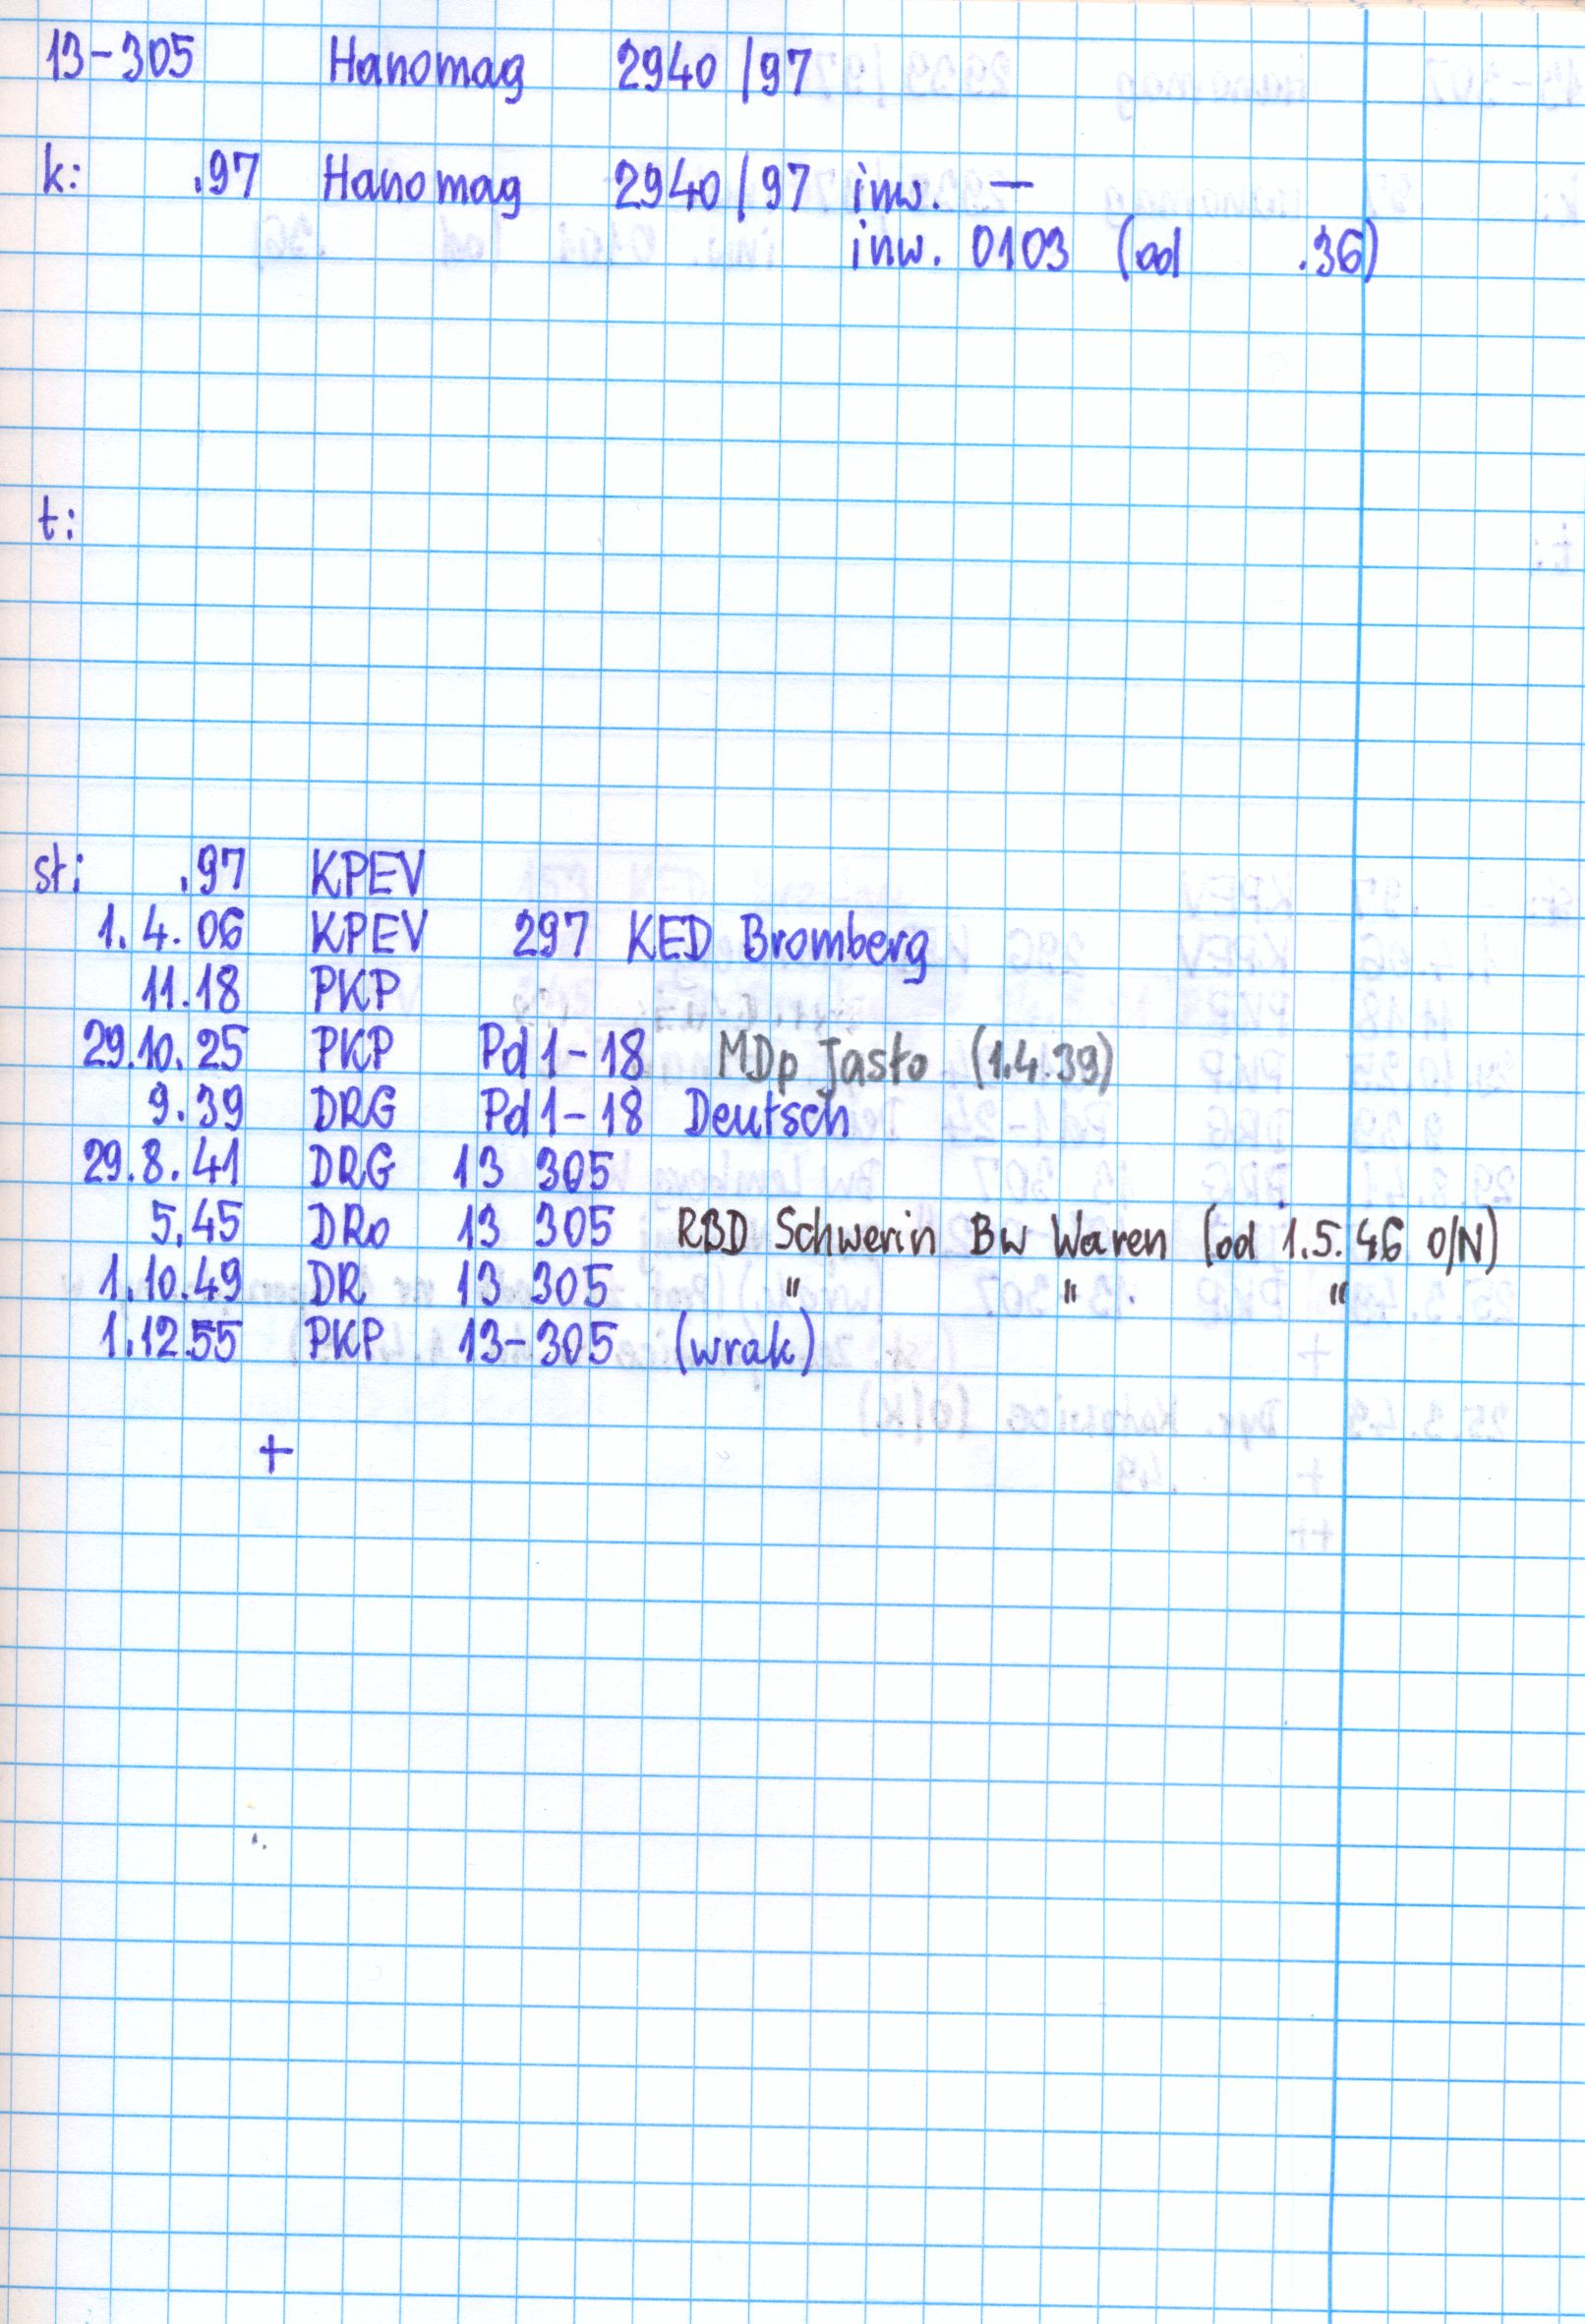 13-305 Hanomag 2940/97
k: .97 Hanomag 2940/97 inw. —
inw. 0103 (od .36)
t:
st: .97 KPEV
1.4.06 KPEV 297 KED Bromberg
11.18 PKP
29.10.25 PKP Pd1-18 MDp Jasło (1.4.39)
9.39 DRG Pd1-18 Deutsch
29.8.41 DRG 13 305
5.45 DRo 13 305 RBD Schwerin Bw Waren (od 1.5.46 O/N)
1.10.49 DR 13 305 " " "
1.12.55 PKP 13-305 (wrak)
+